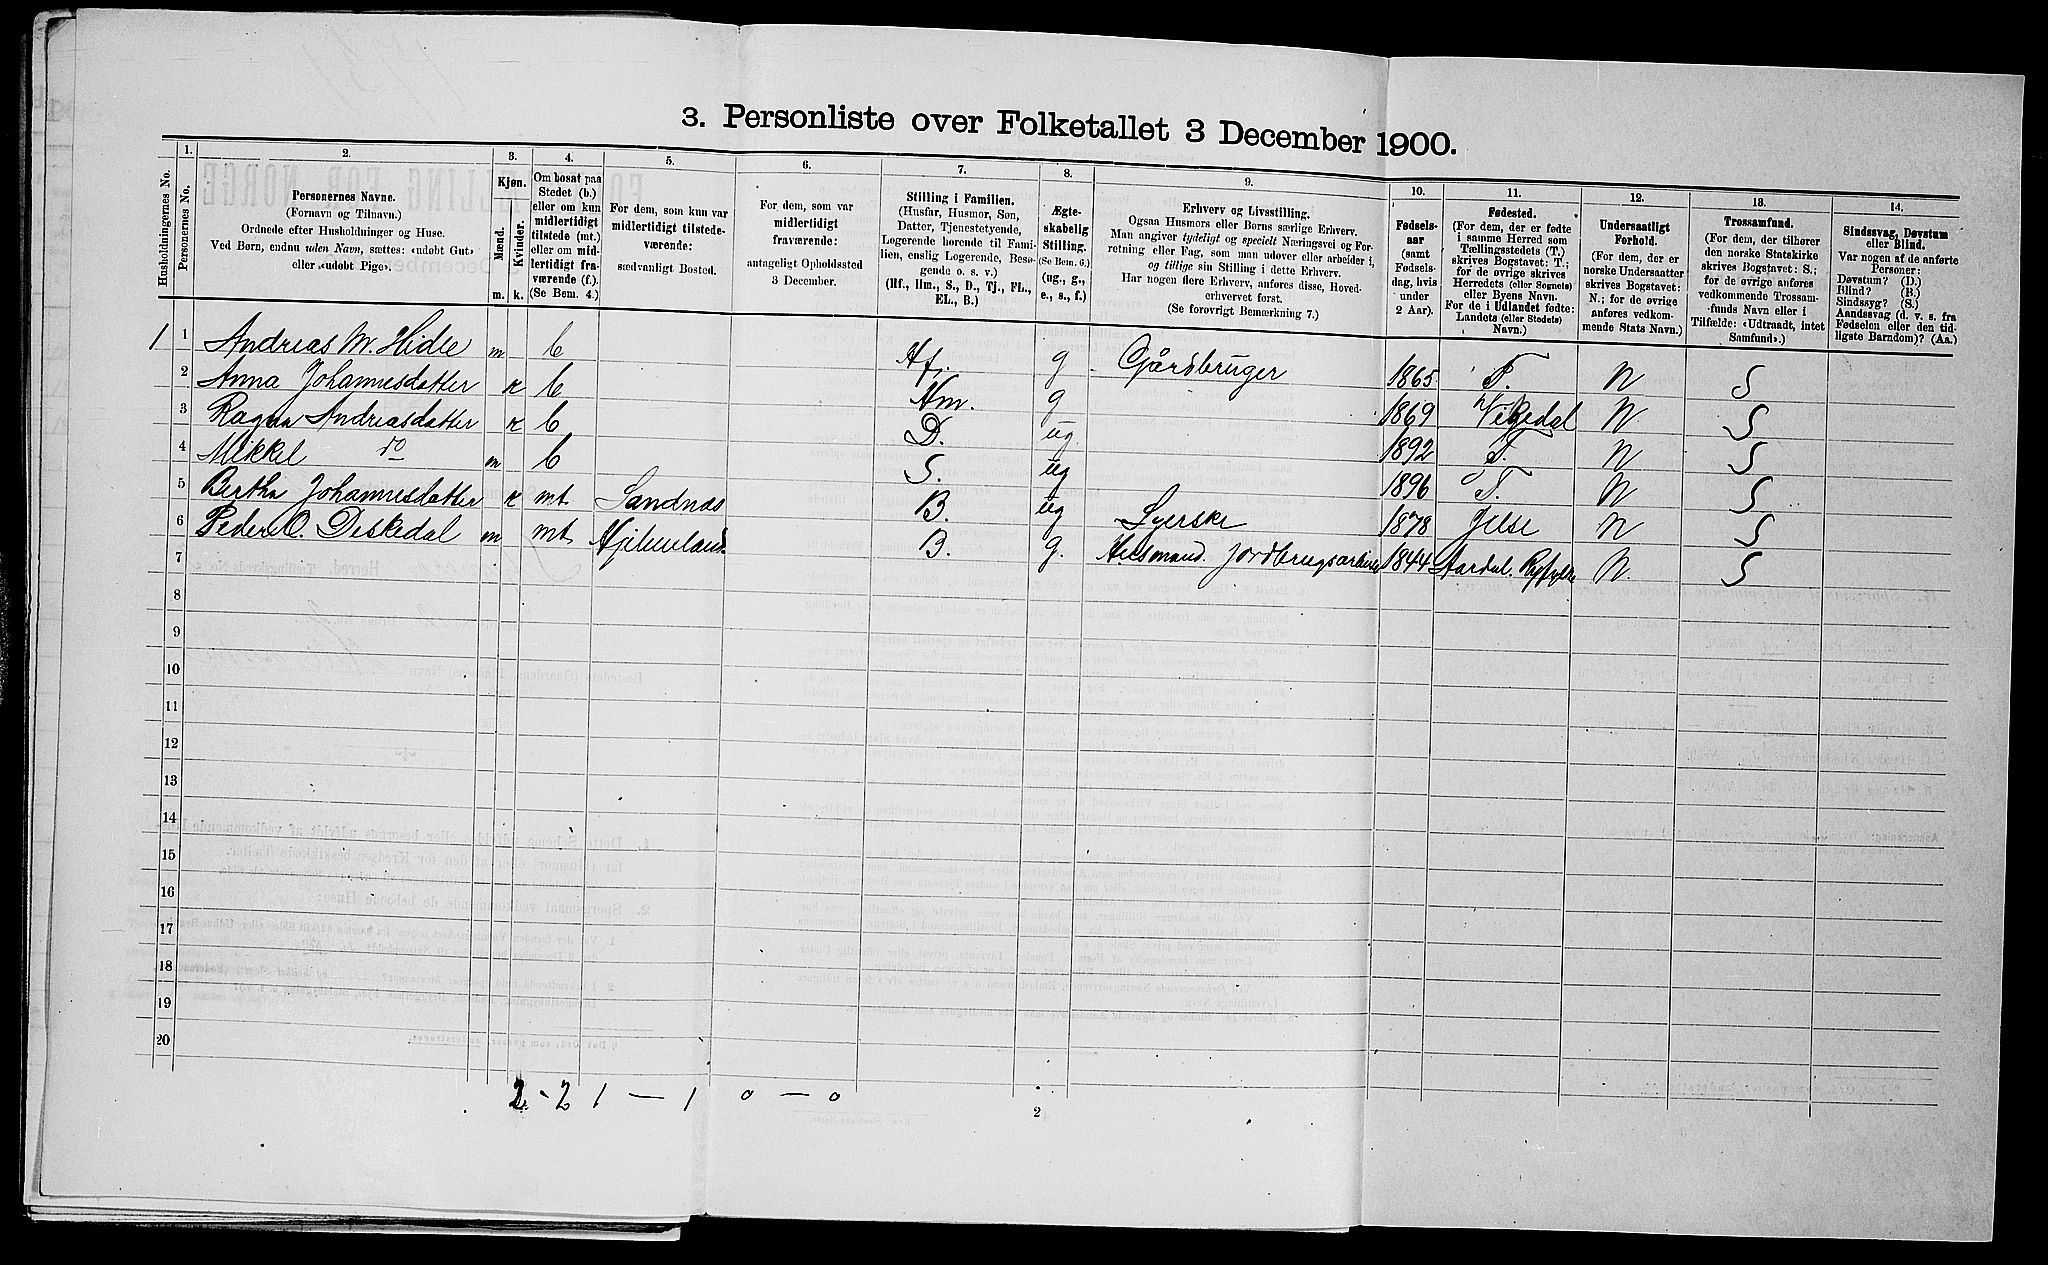 3. Personliste over Folketallet 3 December 1900.
Husholdningernes No.
1. Personernes No.
2. Personernes Navne.
(Fornavn og Tilnavn.)
Ordnede efter Husholdninger og Huse.
Ved Børn, endnu uden Navn, sættes: «udøbt Gut»
eller «udøbt Pige».
3. Kjøn.
Mænd. Kvinder.
m. k.
4. Om bosat paa
Stedet (b.)
eller om kun
midlertidigt
tilstede (mt.)
eller om mid-
lertidigt fra-
værende (f.).
(Se Bem. 4.)
5. For dem, som kun var
midlertidigt tilstede-
værende:
sædvanligt Bosted.
6. For dem, som var
midlertidigt
fraværende:
antageligt Opholdssted
3 December.
7. Stilling i Familien.
(Husfar, Husmor, Søn,
Datter, Tjenestetyende,
Logerende hørende til Fami-
lien, enslig Logerende, Besø-
gende o. s. v.)
(Hf., Hm., S., D., Tj., FL.,
EL., B.)
8. Ægte-
skabelig
Stilling.
(Se Bem. 6.)
(ug., g.,
e., s., f.)
9. Erhverv og Livsstilling.
Ogsaa Husmors eller Børns særlige Erhverv.
Man angiver tydeligt og specielt Næringsvei og For-
retning eller Fag, som man udøver eller arbeider i,
og tillige sin Stilling i dette Erhverv.
Har nogen flere Erhverv, anføres disse, Hoved-
erhvervet først.
(Se forøvrigt Bemærkning 7.)
10. Fødsels-
aar
(samt
Fødsels-
dag, hvis
under
2 Aar).
11. Fødested.
(For dem, der er fødte
i samme Herred som
Tællingsstedets (T.)
skrives Bogstavet: T.;
for de øvrige skrives
Herredets (eller Sognets)
eller Byens Navn.
For de i Udlandet fødte:
Landets (eller Stedets)
Navn.)
12. Undersaatligt
Forhold.
(For dem, der er
norske Undersaatter
skrives Bogstavet:
N.; for de øvrige
anføres vedkom-
mende Stats Navn.)
13. Trossamfund.
(For dem, der tilhører
den norske Statskirke
skrives Bogstavet: S.;
for de øvrige anføres
vedkommende Trossam-
funds Navn eller i
Tilfælde: «Udtraadt, intet
Samfund».)
14. Sindssvag, Døvstum
eller Blind.
Var nogen af de anførte
Personer:
Døvstum? (D.)
Blind? (B.)
Sindssyg? (S.)
Aandssvag (d. v. s. fra
Fødselen eller den tid-
ligste Barndom)? (Aa.)
1 1 Andreas M. Hidle m b Hf. g Gårdbruger 1865 T. N S
2 Anna Johannesdatter k b Hm. g 1869 Vikedal N S
3 Ragna Andreasdatter k b D. ug 1892 T. N S
4 Mikkel do m b S. ug 1896 T. N S
5 Bertha Johannesdatter k mt Sandnæs B. ug Syerske 1878 Jelse N S
6 Peder O. m mt B. g. Husmand. Jordbrugsarbeider 1844 Aardal. Ryfylke N. S
7
8
9
10
11
12
13
14
15
16
17
18
19
20
2 - 2 1 — 1 0 — 0
2